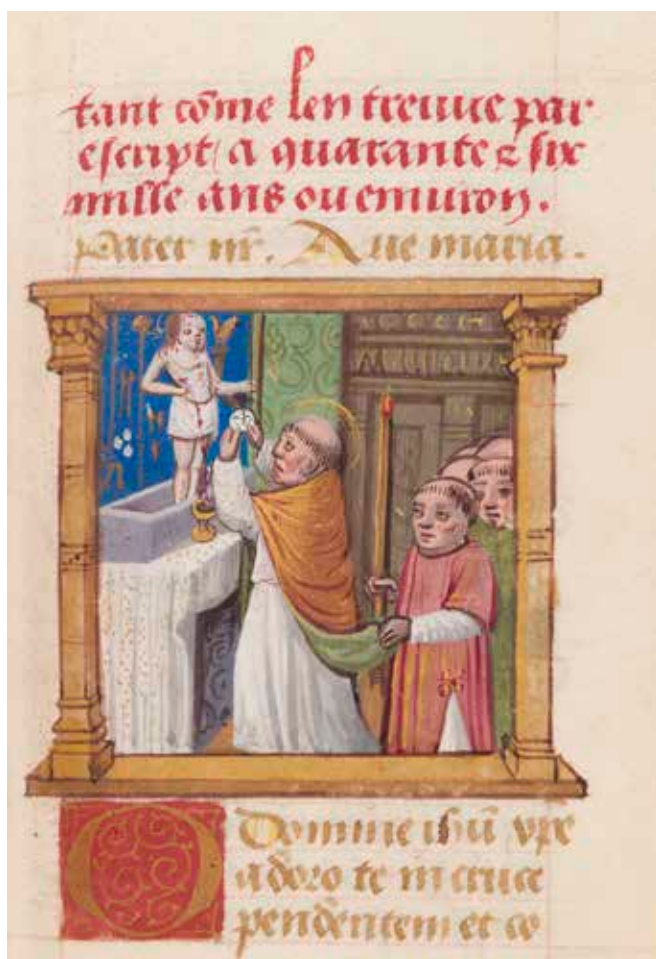 tant cõme len treuue par
escript a quarante & six
mille ans ou enuiron.
Pater nr̃. Aue maria.
O Domine ihũ xpe
adoro te in cruce
pendentem et co